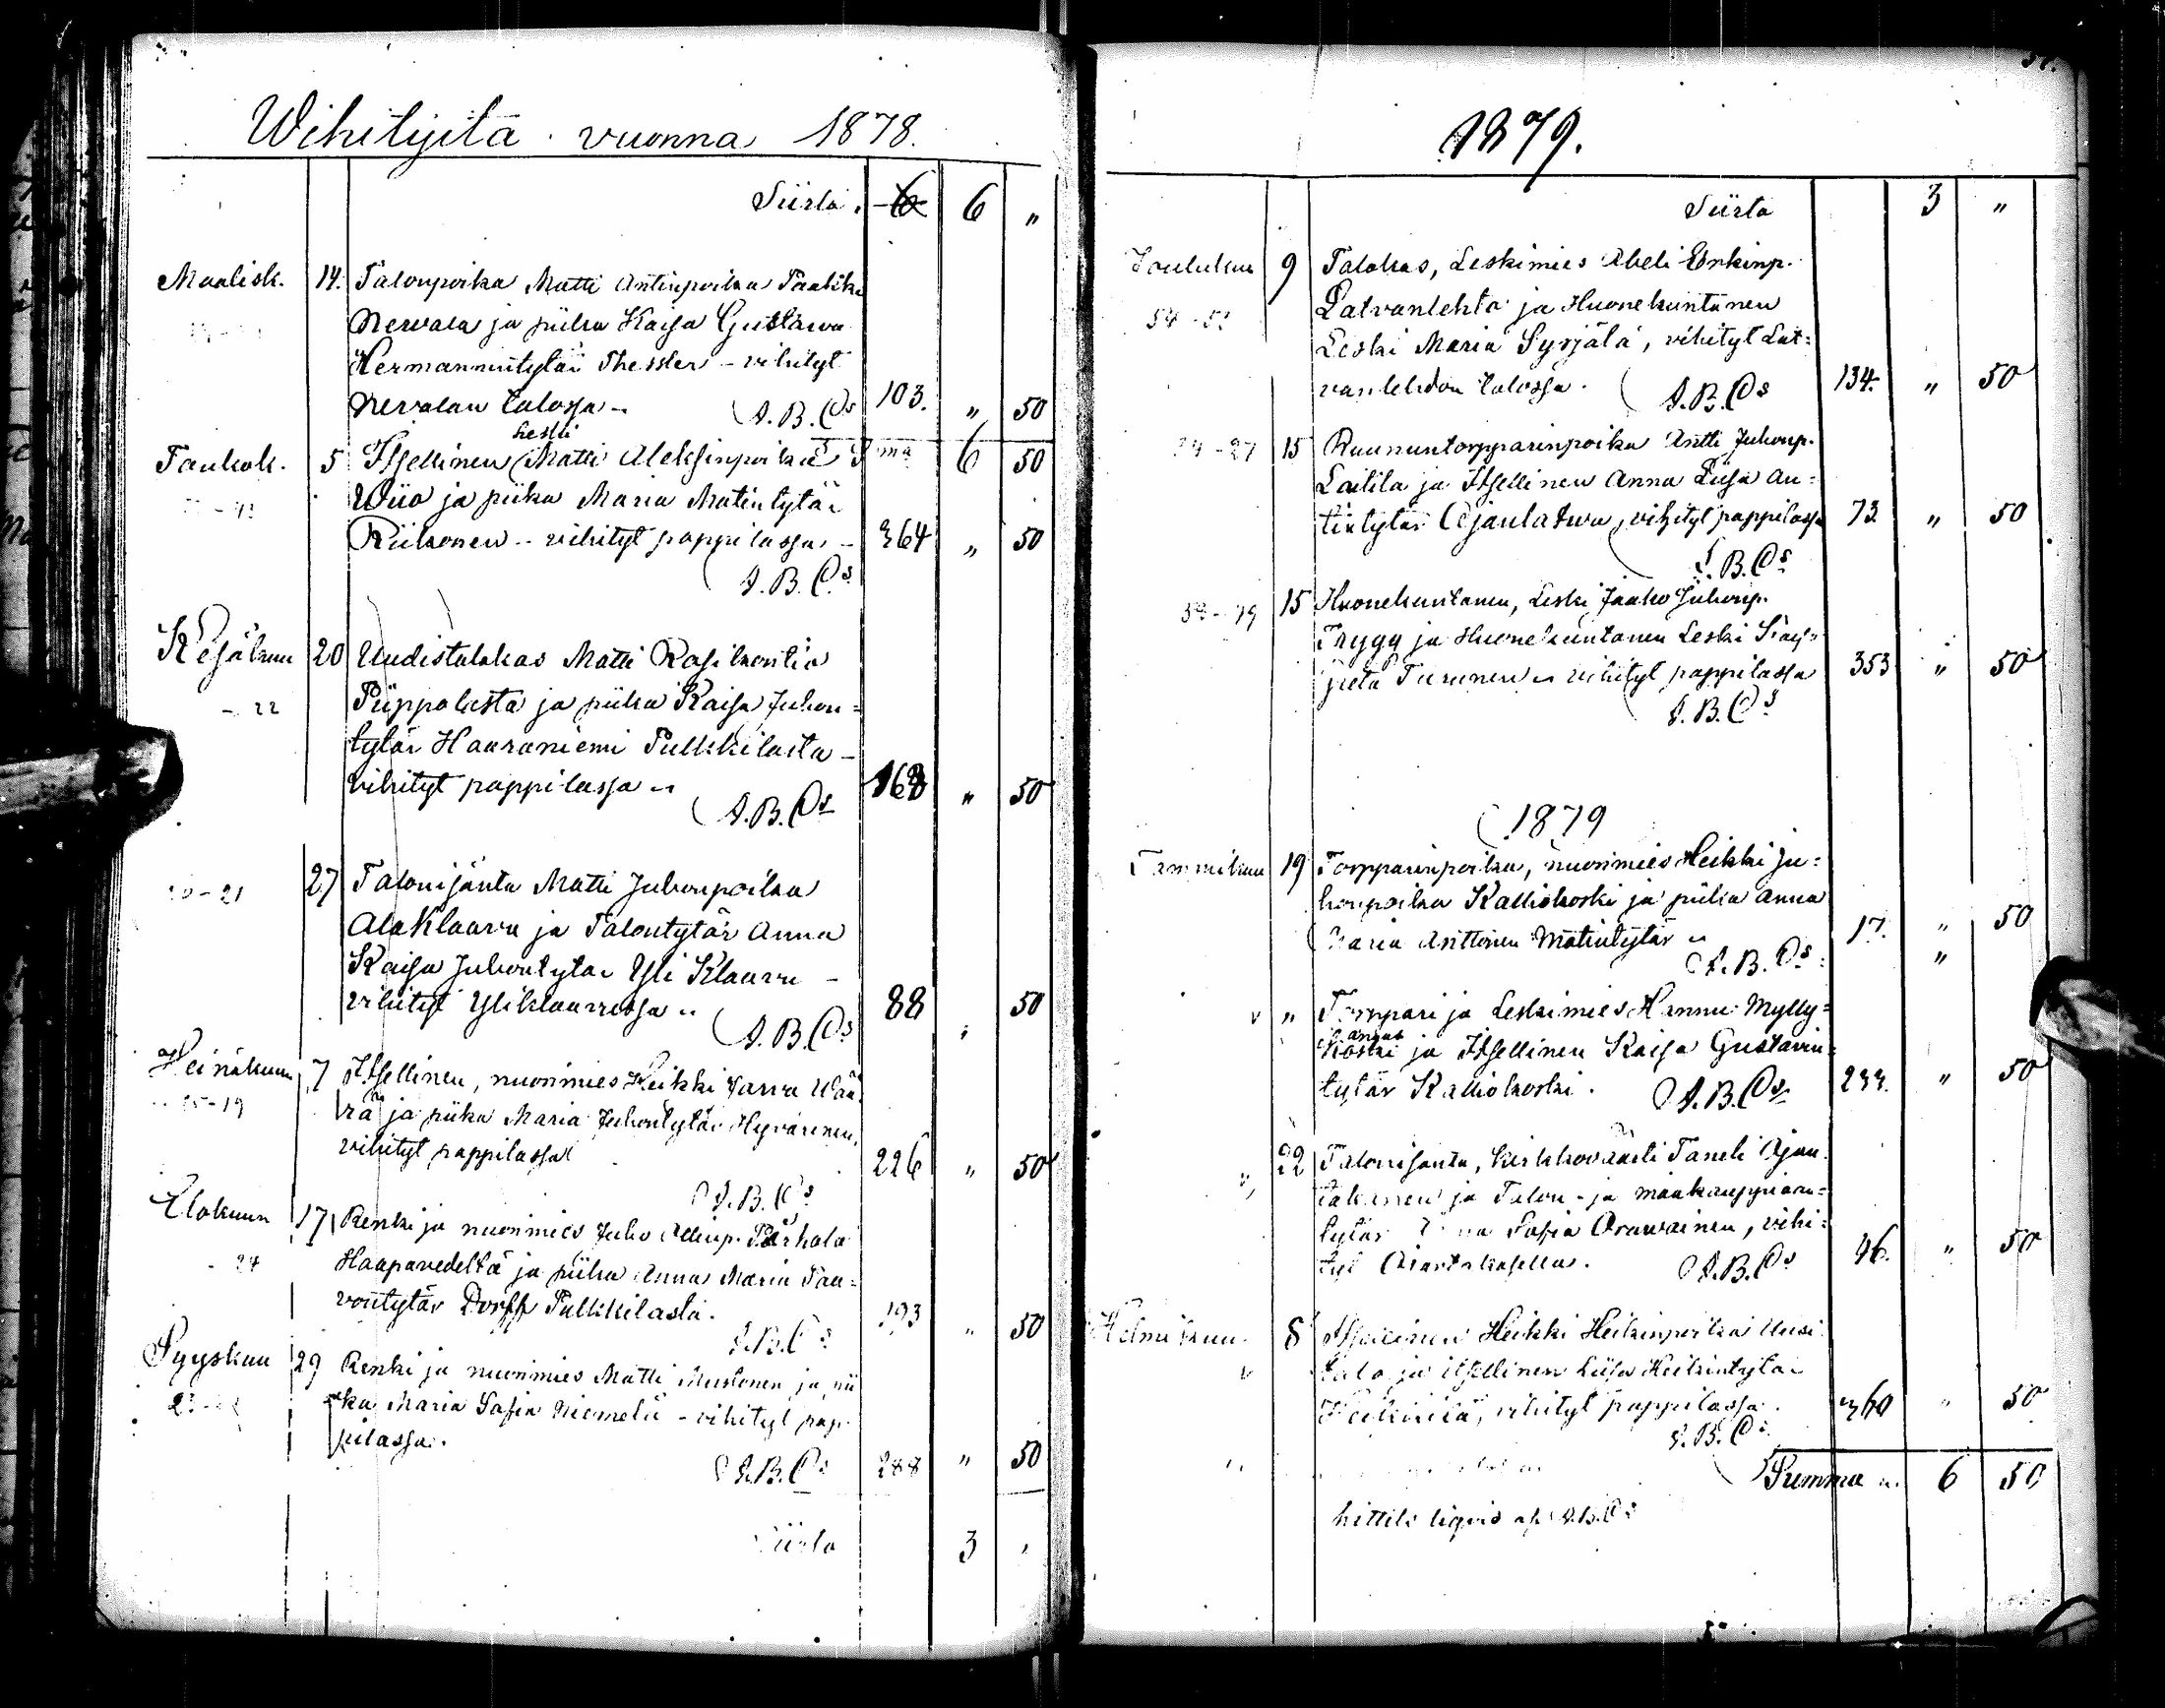 Wihityitä vuonna 1878.
Siirto. 6 6 "
Maalisk. 14. Talonpoika Matti Antinpoika Paaliki
Nervala ja piika Kaisa Gustawa
Hermannintytär Thessler - vihityt
Nervalan talossa - A.B.Cs 103. " 50
Leski
Toukok. 5 Itsellinen Matti Aleksinpoika Sma 6 50
Wiio ja piika Maria Matintytär
Riikonen - vihityt pappilassa - 364 " 50
A.B.Cs
Kesäkuu 20 Uudistalokas Matti Rasikontio
- 22 Piippolasta ja piika Kaisa Juhon=
tytär Haaraniemi Pulkkilasta -
vihityt pappilassa " A.B.Cs 168 " 50
20-21 27 Talonijäntä Matti Juhonpoika
AlaKlaavu ja Talontytär Anna
Kaisa Juhontytär Yli Klaavu -
vihityt Yliklaavussa " A.B.Cs 88 " 50
Heinäkuun 7 Itsellinen, nuorimies Heikki Warru Wää
25-19 rä ja piika Maria Juhontytär Hyvärinen,
vihityt pappilassa 226 " 50
A.B.Cs
Elokuun 17 Renki ja nuorimies Juho Allinp. Pärhälä
- 24 Haapavedeltä ja piika Anna Maria Paa=
vontytär Dorff Pulkkilasta. 193 " 50
A.B.Cs
Syyskuu 29 Renki ja nuorimies Matti Mustonen ja pii
ka Maria Sofia Niemelä - vihityt pap
pilassa.
A.B.Cs 288 " 50
Siirto 3
1879.
Siirto 3 "
Joulukuu 9 Talokas, Leskimies Abeli Erkinp.
54-52 Latvanlehto ja Huonekuntanen
Leski Maria Syrjälä, vihityt Lat=
vanlehdon talossa. A.B.Cs 134. " 50
24-27 15 Ruununtorpparinpoika Antti Juhonp.
Laitila ja Itsellinen Anna Liisa An=
tintytär Ojanlatwa, vihityt pappilassa 73 " 50
A.B.Cs
15 Huonekuntanen, Leski Jaako Juhonp.
Trygg ja Huonekuntanen Leski Prey=
jeta Turunen " vihityt pappilassa 353 " 50
A.B.Cs
1879
Tammikuu 19 Torpparinpoika, nuorimies Heikki Ju=
honpoika Kalliokoski ja piika Anna
Maria Anttonen Matintytär " 17. " 50
A.B.Cs "
" Torppari ja Leskimies Hannu Mylly=
kangas
koski ja Itsellinen Kaisa Gustavin
tytär Kalliokoski. A.B.Cs 233. " 50
22 Talonijäntä, kirkkoväärti Taneli Ojan
takanen ja Talon- ja maakauppiaan=
tytär Sofia Orawainen, vihi=
tyt Ojantakasella. A.B.Cs 46. " 50
Helmikuu 8 Itsellinen Heikki Heikinpoika Uusi
talo ja itsellinen Liisa Heikintytär
Heikkilä, vihityt pappilassa. 360 " 50
A.B.Cs
Summa 6 50
hittils liqvid af A.B.Cs